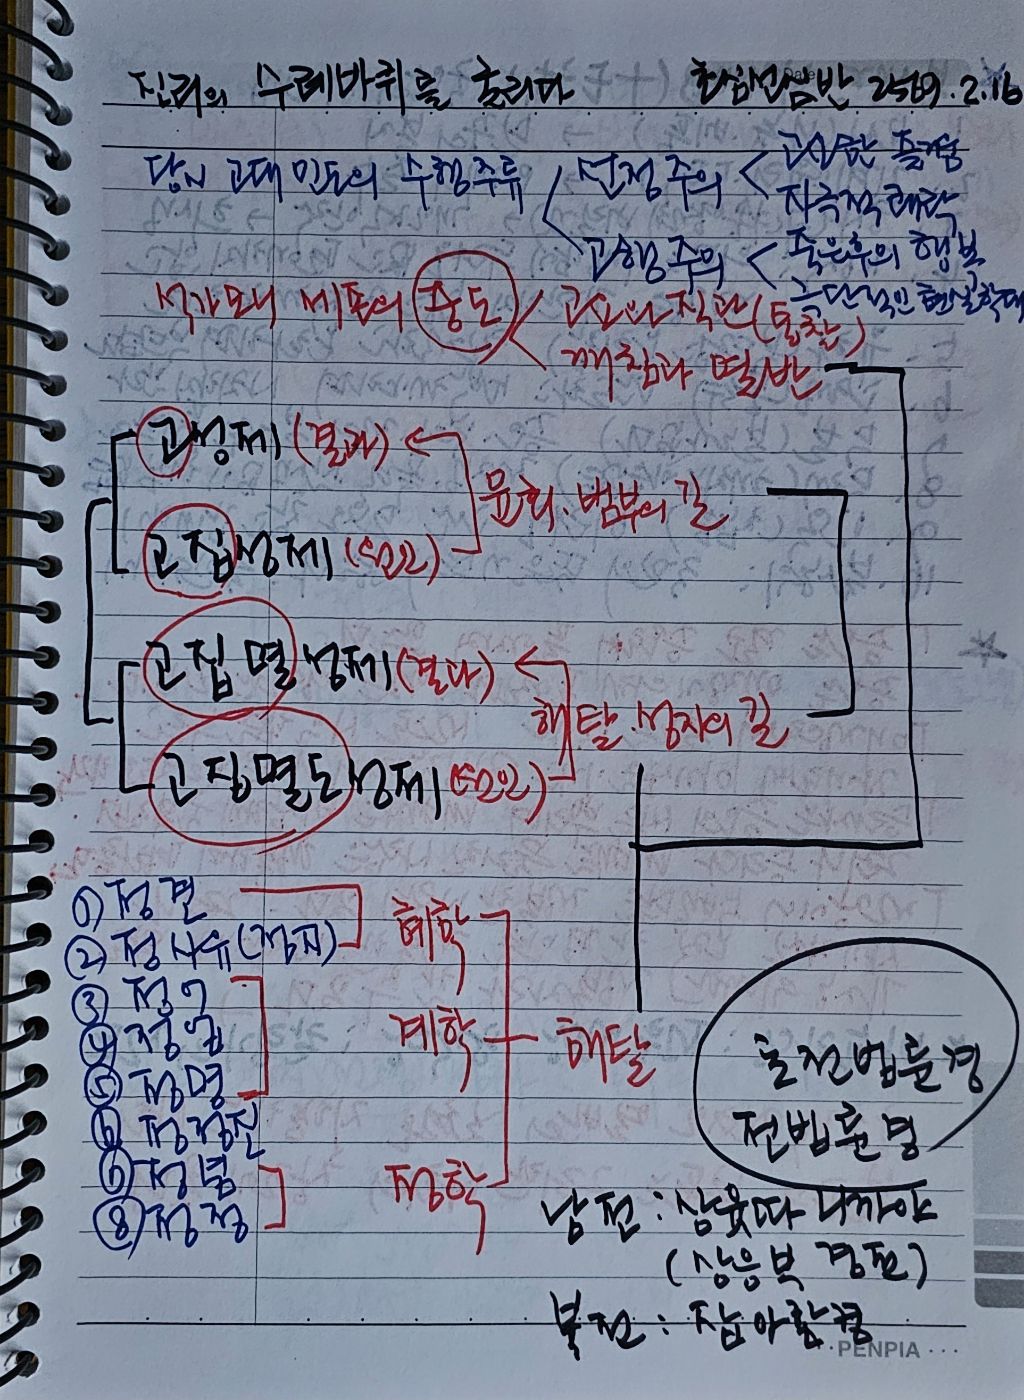 진리의 수레바퀴를 굴리다 화엄선림반 2569.2.16
당시 고대 인도의 수행주류 선정주의 고상한 즐거움
지극적 쾌락
고행주의 죽은후의 행복
극단적인 현실학대
석가모니 세존의 중도 고요와 직관(통찰)
깨침과 열반
고성제 (결과)
윤회·범부의 길
고집성제 (원인)
고집멸성제 (결과)
해탈·성자의 길
고집멸도성제 (원인)
① 정견
② 정사유(정지) 혜학
③ 정어
④ 정업 계학 해탈
⑤ 정명
⑥ 정정진
⑦ 정념 정학
⑧ 정정
초전법륜경
전법륜경
남전 : 상윳따 니까야
(상응부 경전)
북전 : 잡아함경
PENPIA